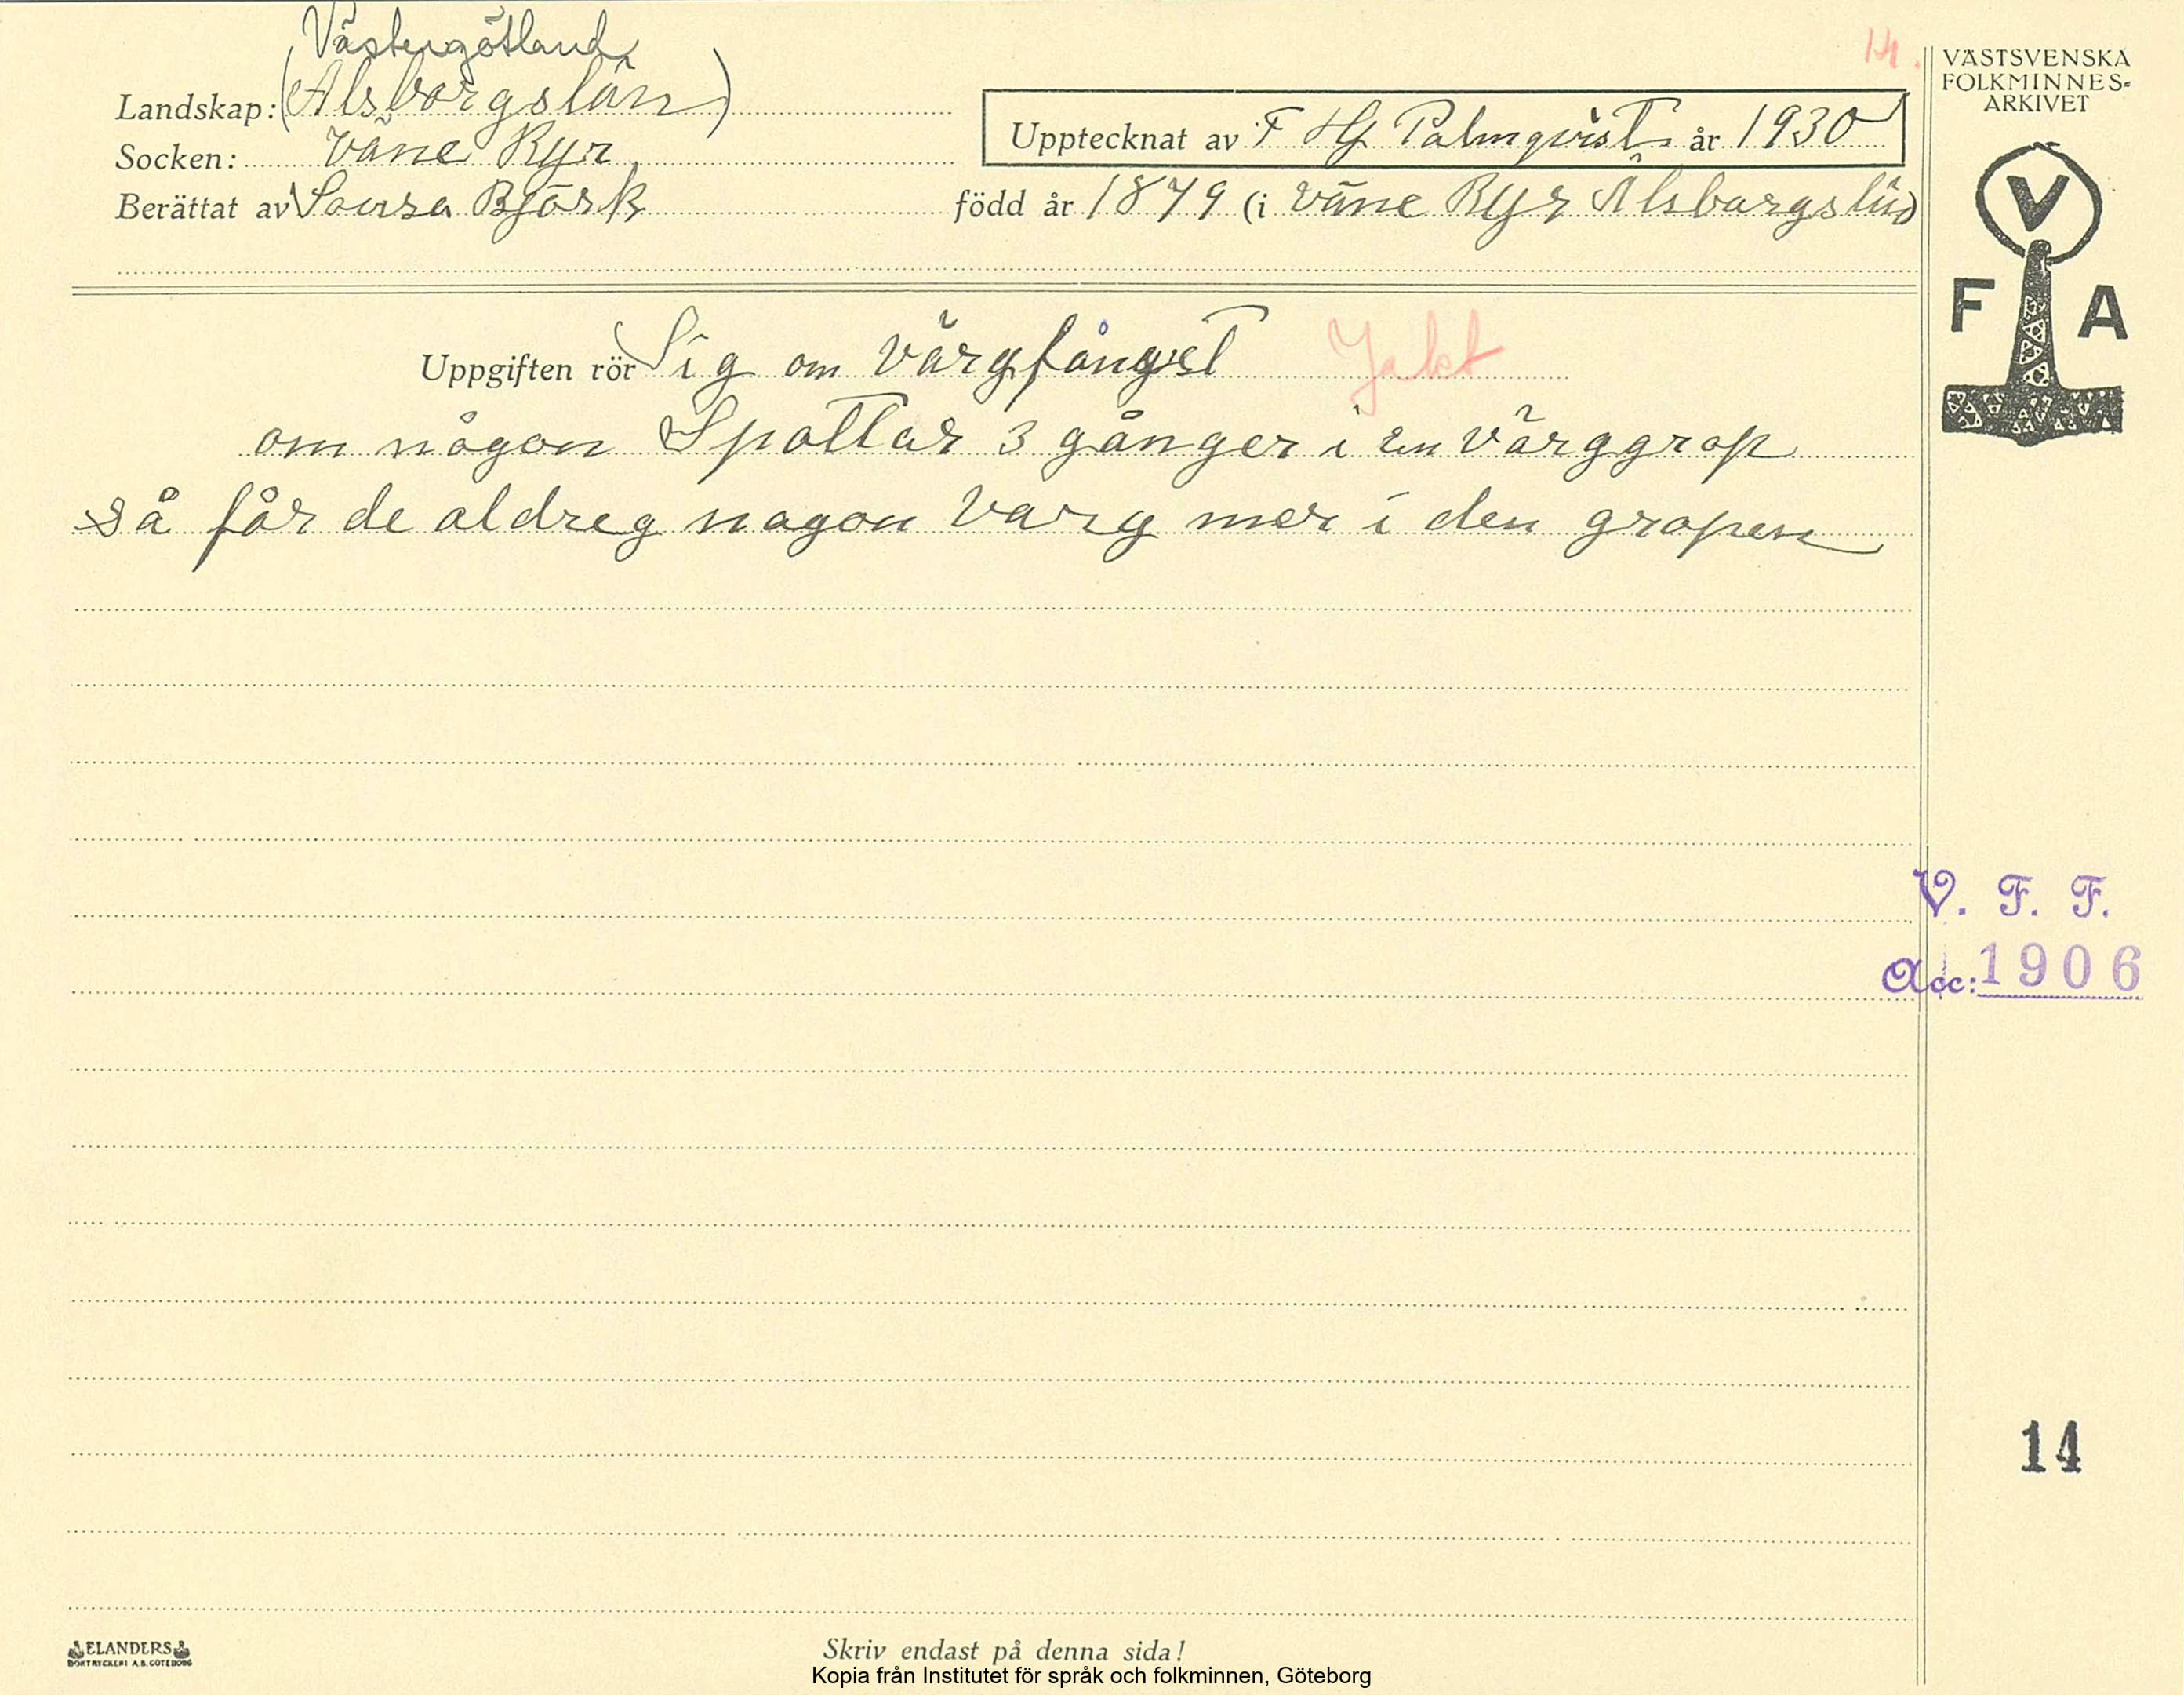 Västergötland
14.
VÄSTSVENSKA
FOLKMINNES-
ARKIVET
Landskap: (Älsborgslän)
Socken: Väne Ryr
Upptecknat av F Hj Palmqvist år 1930
Berättat av Lovisa Björk född år 1879 (i Väne Ryr Älsborgslän)
V
F A
Uppgiften rör Sig om Vårgfångst Jakt
om någon Spottar 3 gånger i en Vårggrop
så får de aldreg nagon Varg mer i den gropen
V. F. F.
Acc: 1906
14
ELANDERS
BOKTRYCKERI A.B. GÖTEBORG
Skriv endast på denna sida!
Kopia från Institutet för språk och folkminnen, Göteborg